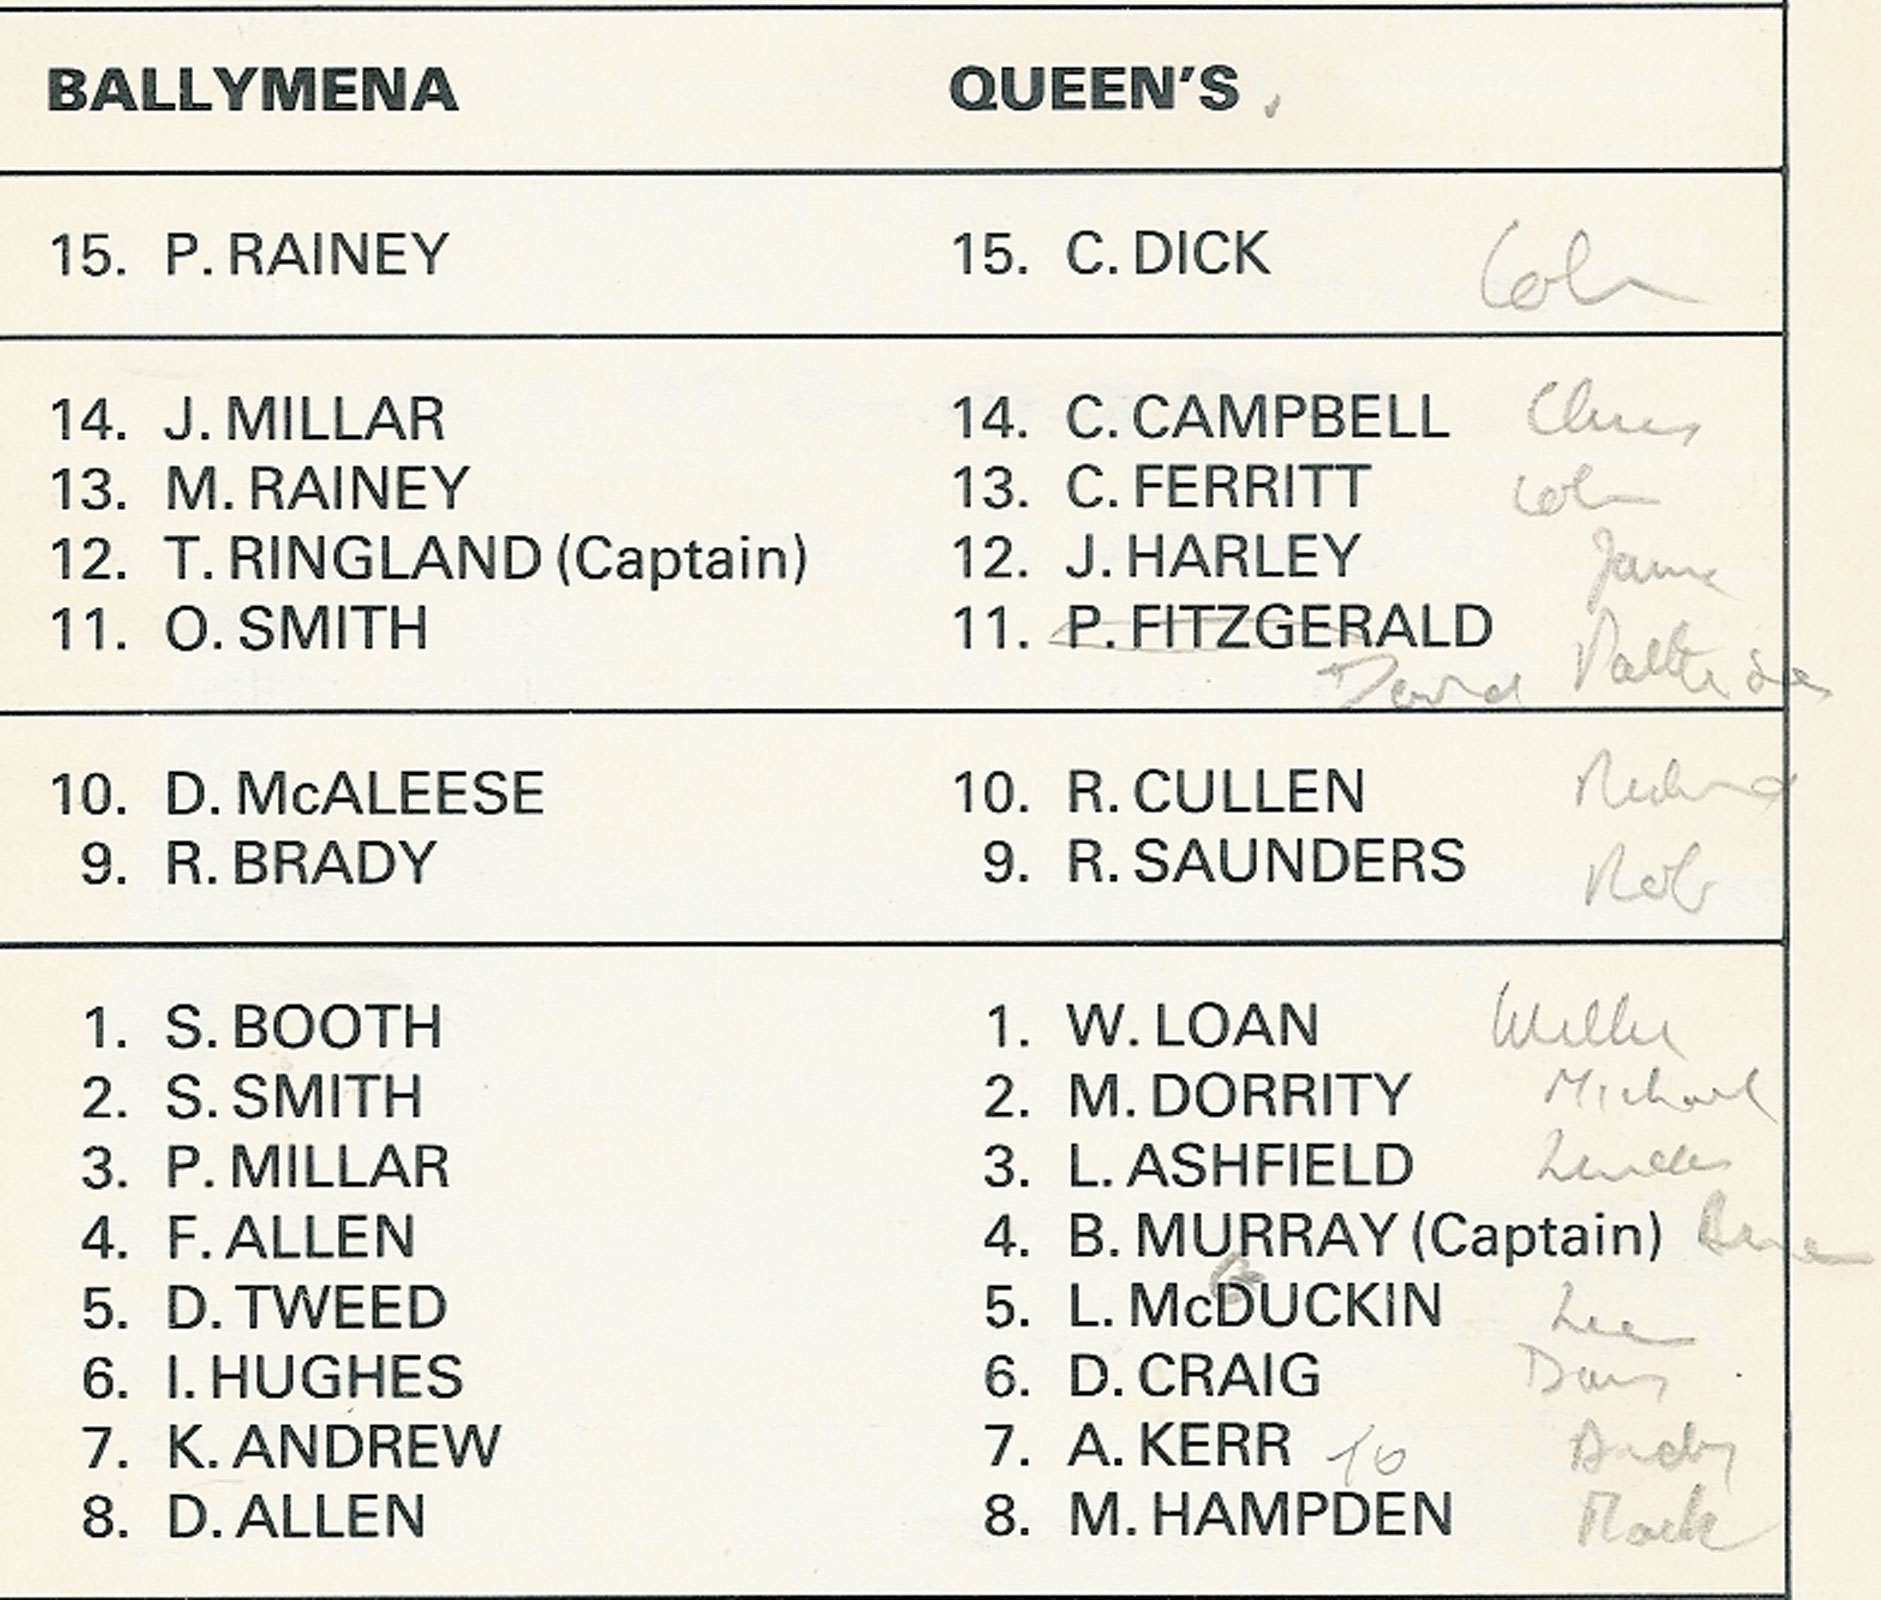 BALLYMENA QUEEN'S
15. P. RAINEY 15. C. DICK Colin
14. J. MILLAR 14. C. CAMPBELL Chris
13. M. RAINEY 13. C. FERRITT Colin
12. T. RINGLAND (Captain) 12. J. HARLEY
11. O. SMITH 11. P. FITZGERALD
David
10. D. McALEESE 10. R. CULLEN Richard
9. R. BRADY 9. R. SAUNDERS Rob
1. S. BOOTH 1. W. LOAN Willie
2. S. SMITH 2. M. DORRITY Michael
3. P. MILLAR 3. L. ASHFIELD
4. F. ALLEN 4. B. MURRAY (Captain)
5. D. TWEED 5. L. McDUCKIN Lee
6. I. HUGHES 6. D. CRAIG
7. K. ANDREW 7. A. KERR Andy
8. D. ALLEN 8. M. HAMPDEN Mark